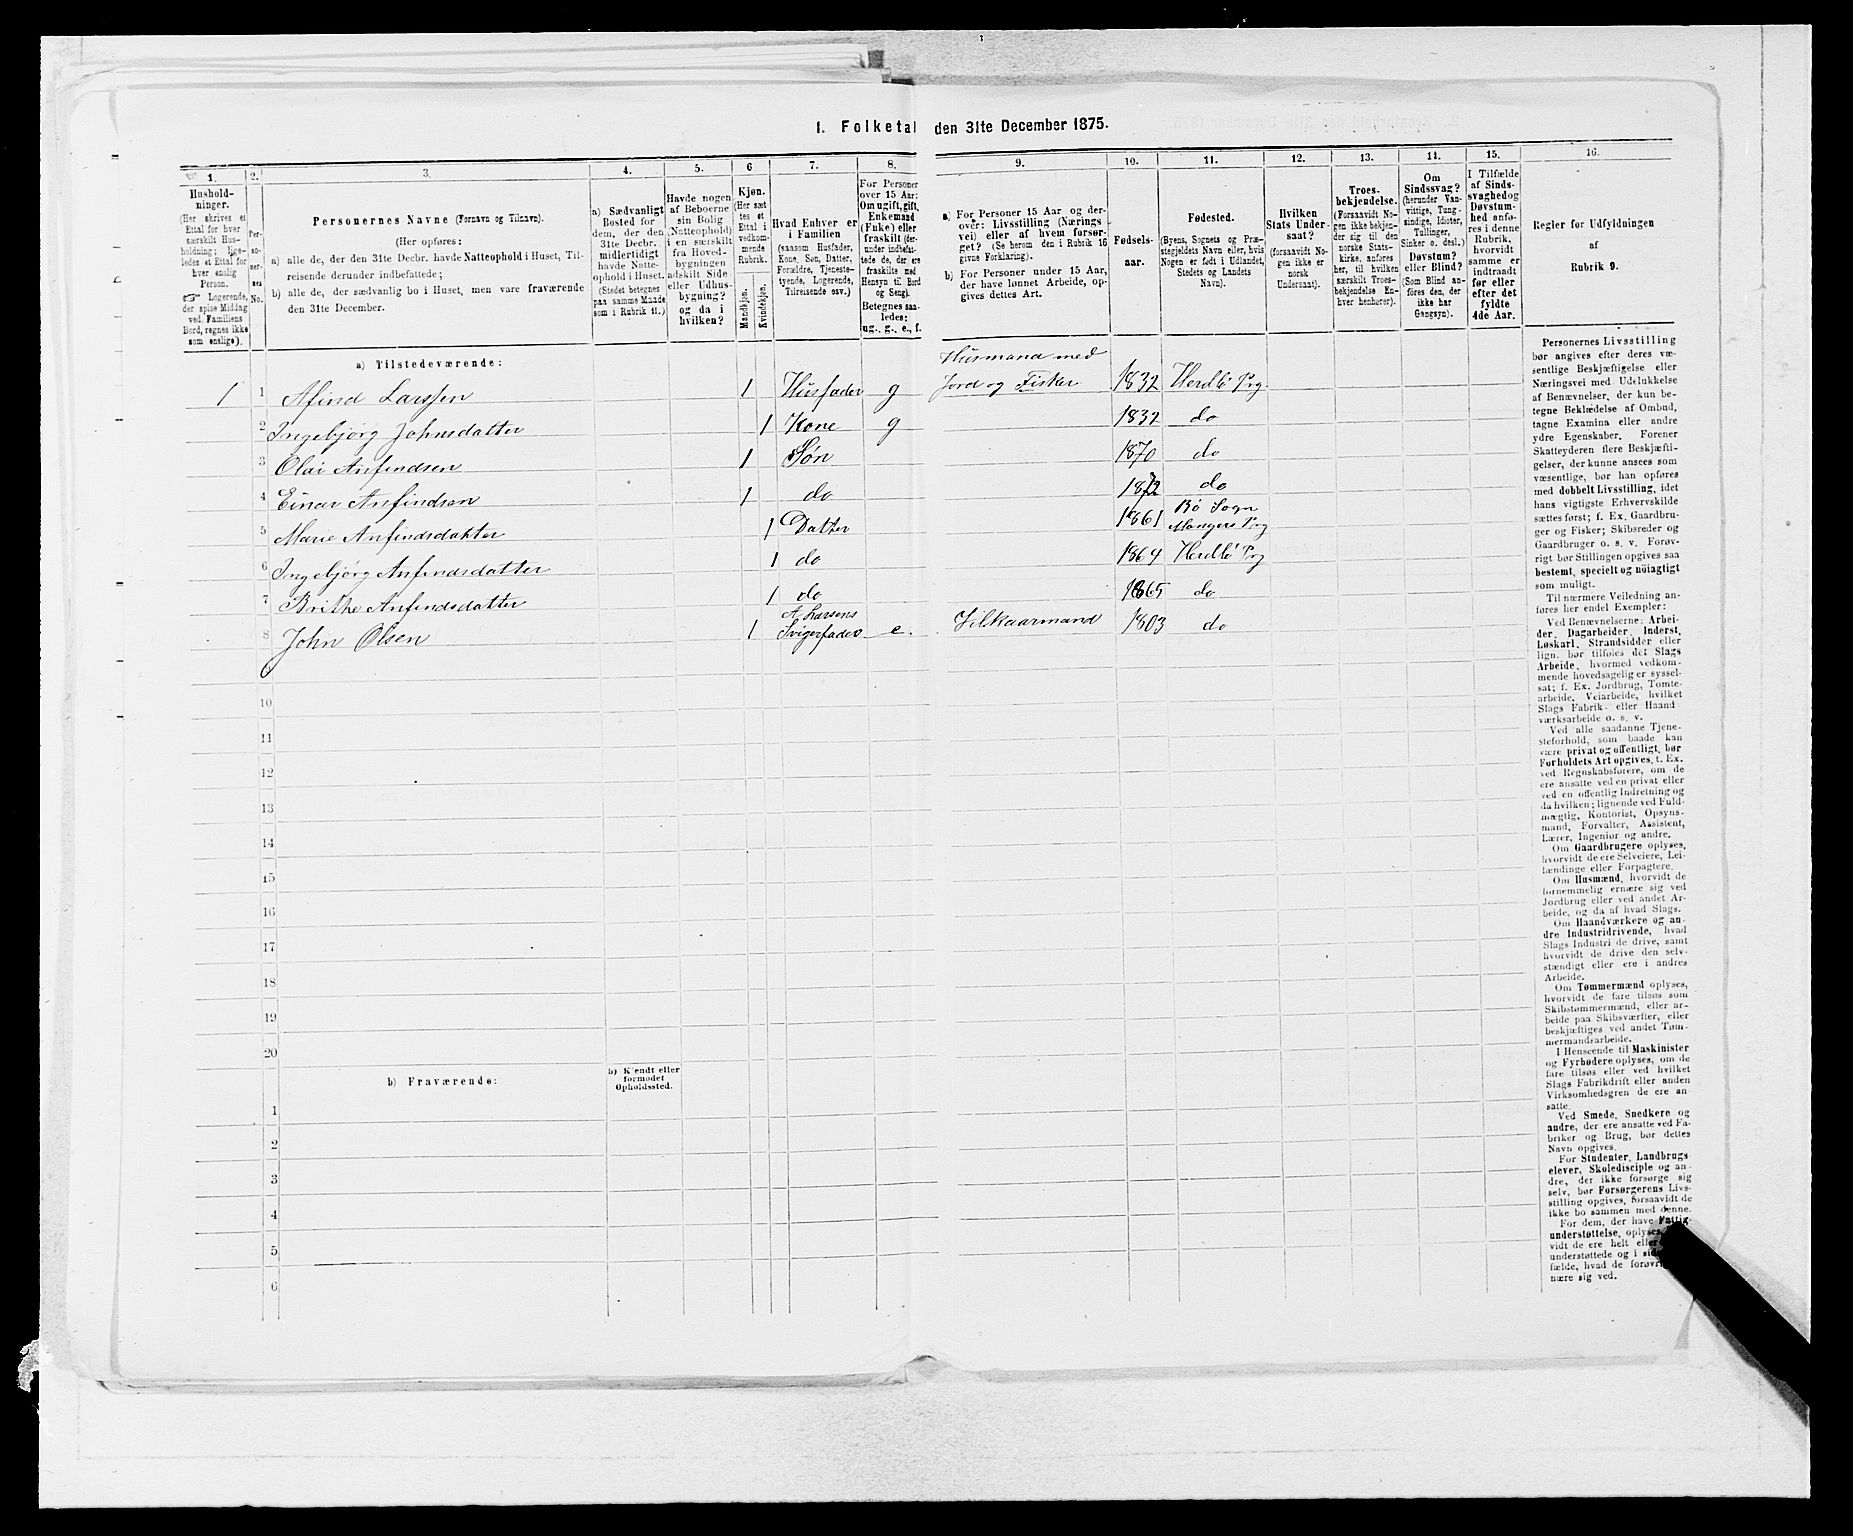 1. Folketal den 31te December 1875.
1. 2. 3. 4. 5. 6 7. 8. 9. 10. 11. 12. 13. 14. 15. 16.
Hushold-
ninger.
(Her skrives et
Ettal for hver
særskilt Hus-
holdning; lige-
ledes et Ettal for
hver enslig
Person.
☞ Logerende,
der spise Middag
ved Familiens
Bord, regnes ikke
som enslige).
Per-
so-
ner-
nes
No.
Personernes Navne (Fornavn og Tilnavn).
(Her opføres:
a) alle de, der den 31te Decbr. havde Natteophold i Huset, Til-
reisende derunder indbefattede;
b) alle de, der sædvanlig bo i Huset, men vare fraværende
den 31te December.
a) Sædvanligt
Bosted for
dem, der den
31te Decbr.
midlertidigt
havde Natte-
ophold i Huset.
(Stedet betegnes
paa samme Maade
som i Rubrik 11.)
Havde nogen
af Beboerne
sin Bolig
(Natteophold)
i en særskilt
fra Hoved-
bygningen
adskilt Side-
eller Udhus-
bygning?
og da i
hvilken?
Kjøn.
(Her sæt-
tes et
Ettal i
vedkom-
mende
Rubrik.
Mandkjøn.
Kvindekjøn.
Hvad Enhver er
i Familien
(saasom Husfader,
Kone, Søn, Datter,
Forældre, Tjeneste-
tyende, Logerende,
Tilreisende osv.)
For Personer
over 15 Aar:
Om ugift, gift,
Enkemand
(Enke) eller
fraskilt (der-
under indbefat-
tede de, der ere
fraskilte med
Hensyn til Bord
og Seng).
Betegnes saa-
ledes:
ug., g., e., f.
a) For Personer 15 Aar og der-
over: Livsstilling (Nærings-
vei) eller af hvem forsør-
get? (Se herom den i Rubrik 16
givne Forklaring).
b) For Personer under 15 Aar,
der have lønnet Arbeide, op-
gives dettes Art.
Fødsels-
aar.
Fødested.
(Byens, Sognets og Præ-
stegjeldets Navn eller, hvis
Nogen er født i Udlandet,
Stedets og Landets
Navn).
Hvilken
Stats Under-
saat?
(forsaavidt No-
gen ikke er
norsk
Undersaat).
Troes-
bekjendelse.
(Forsaavidt No-
gen ikke bekjen-
der sig til den
norske Stats-
kirke, anføres
her, til hvilken
særskilt Troes-
bekjendelse En-
hver henhører).
Om
Sindssvag?
(herunder Van-
vittige, Tung-
sindige, Idioter,
Tullinger,
Sinker o. desl.)
Døvstum?
eller Blind?
(Som Blind an-
føres den, der
ikke har
Gangsyn).
I Tilfælde
af Sinds-
svaghed og
Døvstum-
hed anfø-
res i denne
Rubrik,
hvorvidt
samme er
indtraadt
før eller
efter det
fyldte
4de Aar.
Regler for Udfyldningen
af
Rubrik 9.
a) Tilstedeværende:
Husmand med
1 1 Afind Larssen 1 Husfader g Jord og Fisker 1832 Herdlö Prg
2 Ingebjörg Johnsdatter 1 Kone g 1832 do
3 Olai Anfindsen 1 Søn 1870 do
4 Einar Anfindsen 1 do 1872 do
5 Marie Anfindsdatter 1 Datter 1861 Bö Sogn
Mangers Prg
6 Ingebjörg Anfindsdatter 1 do 1864 Herdlö Prg
7 Brithe Anfindsdatter 1 do 1865 do
A. Larsens
8 John Olsen 1 Svigerfader e. Vilkaarmand 1803 do
10
11
12
13
14
15
16
17
18
19
20
b) Fraværende:
b) Kjendt eller
formodet
Opholdssted.
1
2
3
4
5
6
Personernes Livsstilling
bør angives efter deres væ-
sentlige Beskjæftigelse eller
Næringsvei med Udelukkelse
af Benævnelser, der kun be-
tegne Beklædelse af Ombud,
tagne Examina eller andre
ydre Egenskaber. Forener
Skatteyderen flere Beskjæfti-
gelser, der kunne ansees som
væsentlige, bør han opføres
med dobbelt Livsstilling, idet
hans vigtigste Erhvervskilde
sættes først; f. Ex. Gaardbru-
ger og Fisker; Skibsreder og
Gaardbruger o. s. v. Forøv-
rigt bør Stillingen opgives saa
bestemt, specielt og nöiagtigt
som muligt.
Til nærmere Veiledning an-
føres her endel Exempler:
Ved Benævnelserne: Arbei-
der, Dagarbeider, Inderst,
Løskarl, Strandsidder eller
lign. bør tilføies det Slags
Arbeide, hvormed vedkom-
mende hovedsagelig er syssel-
sat; f. Ex. Jordbrug, Tomte-
arbeide, Veiarbeide, hvilket
Slags Fabrik- eller Haand
værksarbeide o. s. v.
Ved alle saadanne Tjene-
steforhold, som baade kan
være privat og offentligt, bør
Forholdets Art opgives, f. Ex.
ved Regnskabsførere, om de
ere ansatte ved en privat eller
ved en offentlig Indretning og
da hvilken; lignende ved Fuld-
mægtig, Kontorist, Opsyns-
mand, Forvalter, Assistent,
Lærer, Ingeniør og andre.
Om Gaardbrugere oplyses,
hvorvidt de ere Selveiere, Lei-
lændinge eller Forpagtere.
Om Husmænd, hvorvidt de
fornemmelig ernære sig ved
Jordbrug eller ved andet Ar-
beide, og da af hvad Slags.
Om Haandværkere og an-
dre Industridrivende, hvad
Slags Industri de drive, samt
hvorvidt de drive den selv-
stændigt eller ere i andres
Arbeide.
Om Tømmermænd oplyses,
hvorvidt de fare tilsøs som
Skibstømmermænd, eller ar-
beide paa Skibsværfter, eller
beskjæftiges ved andet Tøm-
mermandsarbeide.
I Henseende til Maskinister
og Fyrbødere oplyses, om de
fare tilsøs eller ved hvilket
Slags Fabrikdrift eller anden
Virksomhedsgren de ere an-
satte.
Ved Smede, Snedkere og
andre, der ere ansatte ved Fa-
briker og Brug, bør dettes
Navn opgives.
For Studenter, Landbrugs-
elever, Skoledisciple og an-
dre, der ikke forsørge sig
selv, bør Forsørgerens Livs-
stilling opgives, forsaavidt de
ikke bo sammen med denne.
For dem, der have Fattig-
understøttelse, oplyses,
vidt de ere helt eller
understøttede og i
fælde, hvad de
nære sig ved.